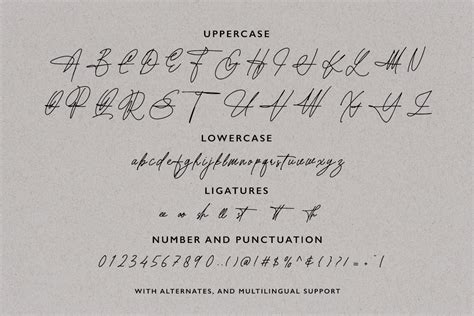 UPPERCASE
A B C D E F G H I J K L M N
O P Q R S T U V W X Y Z
LOWERCASE
abcdefghijklmnopqrstuvwxyz
LIGATURES
ee oo sh ll st tt th
NUMBER AND PUNCTUATION
01234567890..()@!#$%&()??/=+"|
WITH ALTERNATES, AND MULTILINGUAL SUPPORT